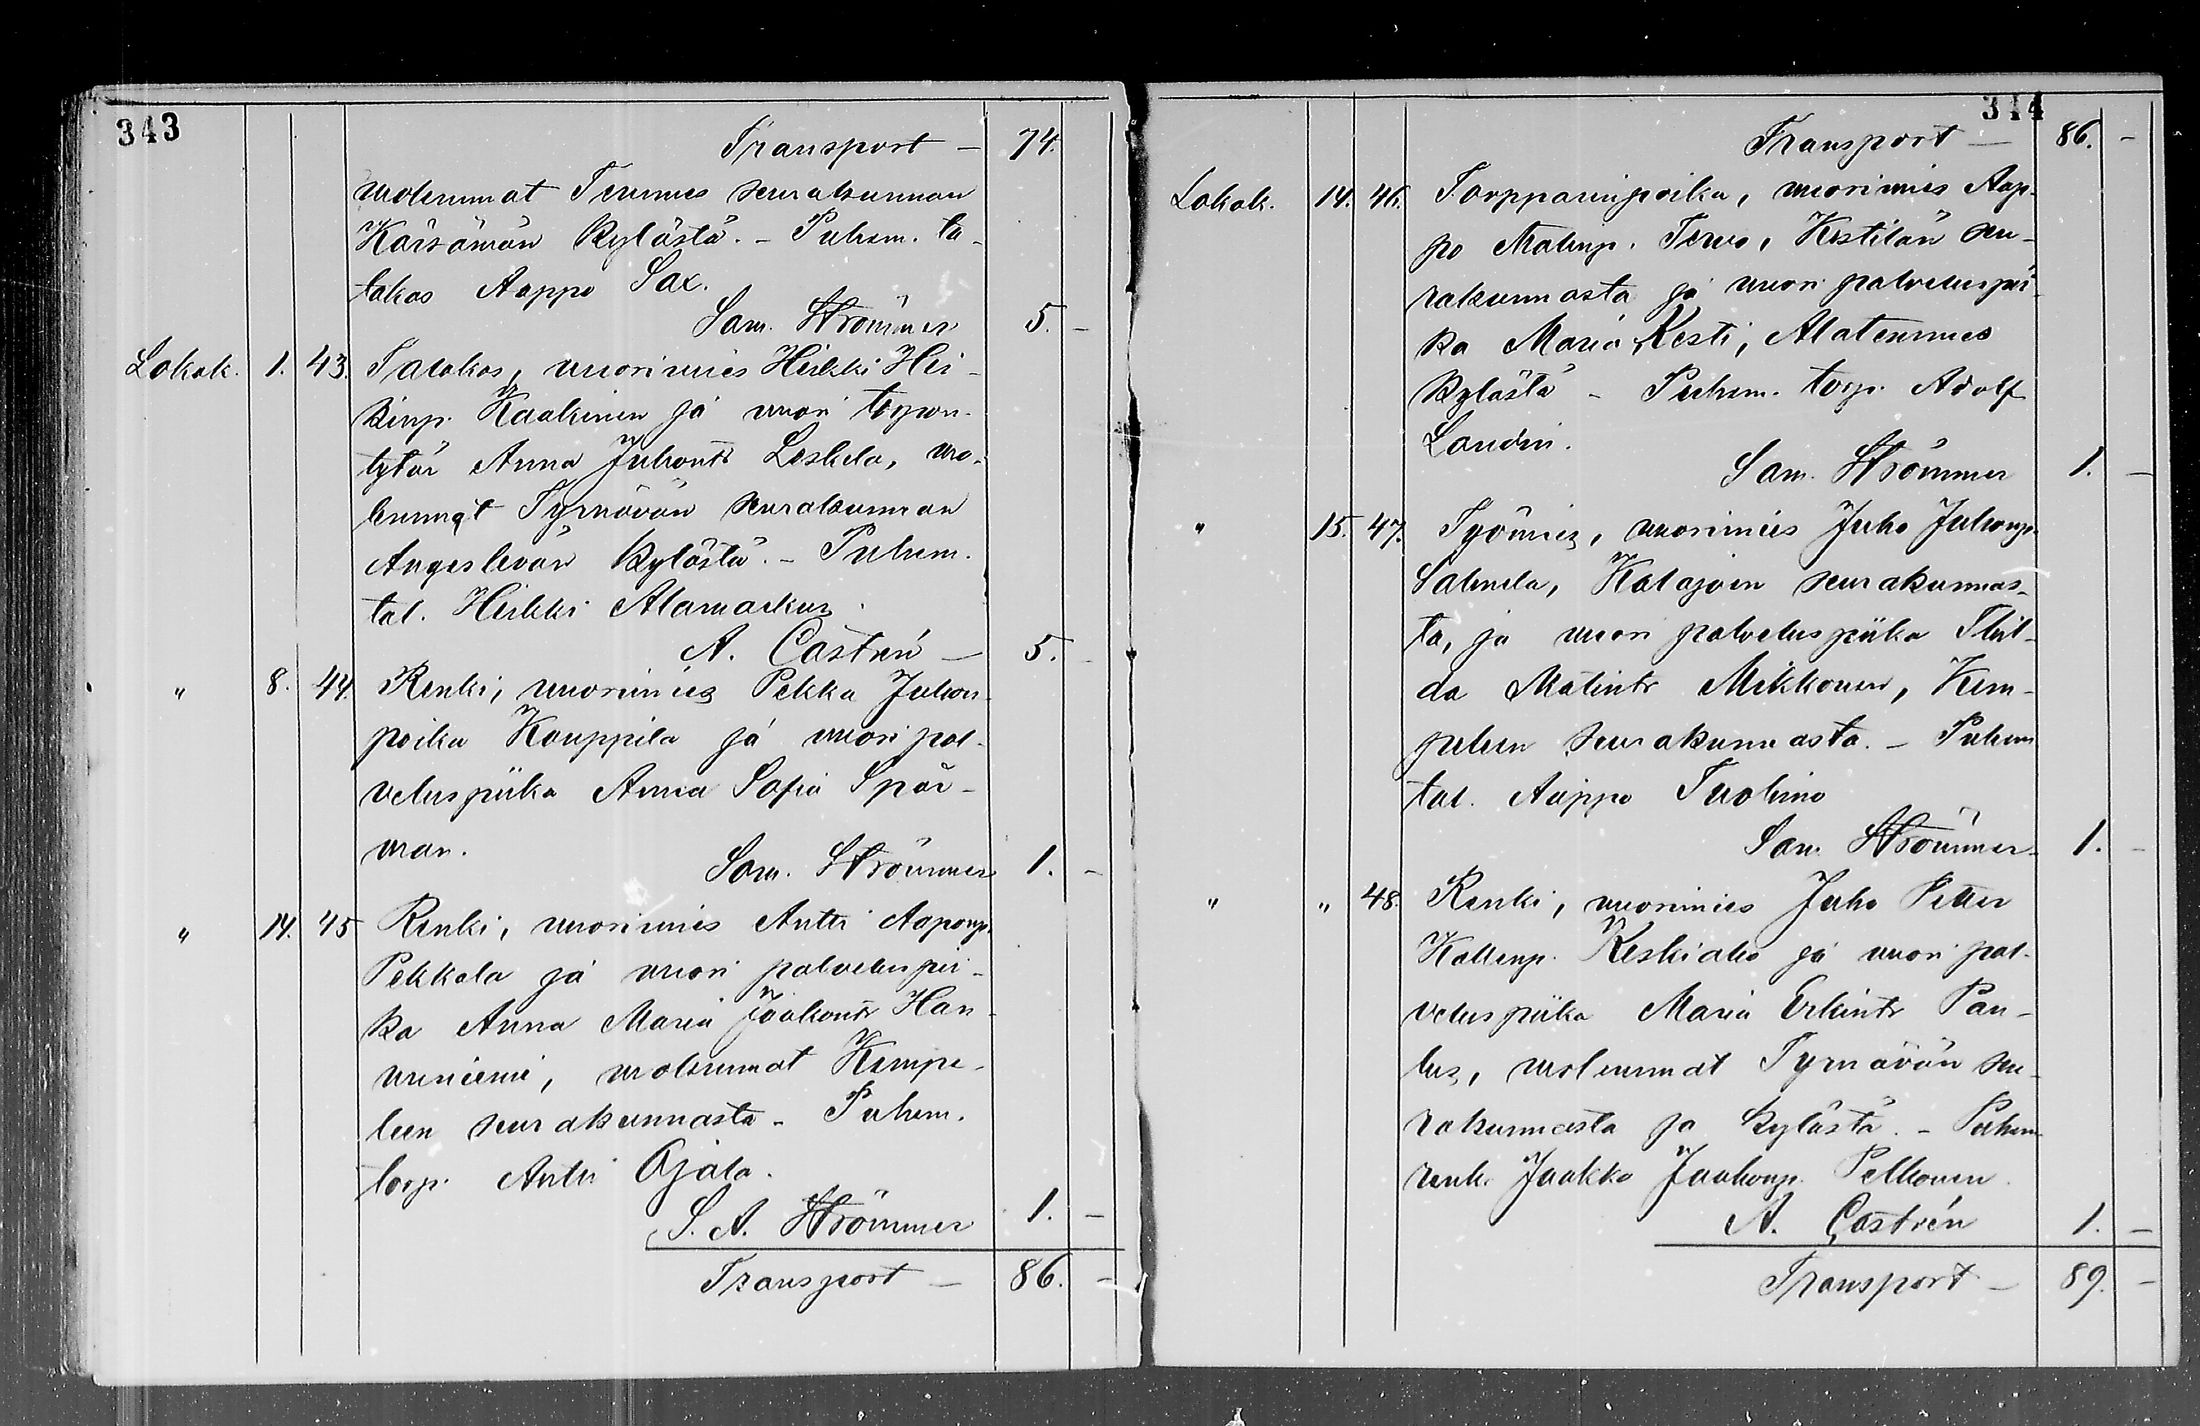 343
Transport — 74.
molemmat Temmes seurakunnan
Kärsämän kylästä. – Puhem. ta-
lokas Aappo Sax.
Sam. Strömmer 5. –
Lokak. 1. 43. Talokas, nuorimies Heikki Hei-
kinp. Kaakinen ja nuori torpan-
tytär Anna Juhontr Leskela, mo-
lemmat Tyrnävän seurakunnan
Angeslevän kylästä. – Puhem.
tal. Heikki Alamarkus.
A. Castrén — 5. –
" 8. 44. Renki, nuorimies Pekka Juhon-
poika Kauppila ja nuori pal-
veluspiika Anna Sofia Spår-
man.
Sam. Strömmer 1. –
" 14. 45 Renki, nuorimies Antti Aaponp.
Pekkala ja nuori palveluspii-
ka Anna Maria Jaakontr Han-
nuniemi, molemmat Kempe-
leen seurakunnasta – Puhem.
torp. Antti Ojala.
S. A. Strömmer 1. –
Transport — 86. –
344
Transport — 86. –
Lokak. 14. 46. Torpparinpoika, nuorimies Aap-
po Matinp. Tervo, Kestilän seu-
rakunnasta ja nuori palveluspii-
ka Maria Kesti, Alatemmes
kylästä – Puhem. torp. Adolf
Landin.
Sam. Strömmer 1. –
" 15. 47. Työmies, nuorimies Juho Juhonp.
Salmela, Kalajoen seurakunnas-
ta, ja nuori palveluspiika Thil-
da Matintr Mikkonen, Kem-
peleen seurakunnasta. – Puhem
tal. Aappo Tuohino
Sam. Strömmer 1. –
" " 48. Renki, nuorimies Juho Petter
Kallenp. Keskiaho ja nuori pal-
veluspiika Maria Erkintr Pau-
lus, molemmat Tyrnävän seu-
rakunnasta ja kylästä. – Puhem
renk. Jaakko Jaakonp. Pelkonen.
A. Castrén 1. –
Transport — 89. –